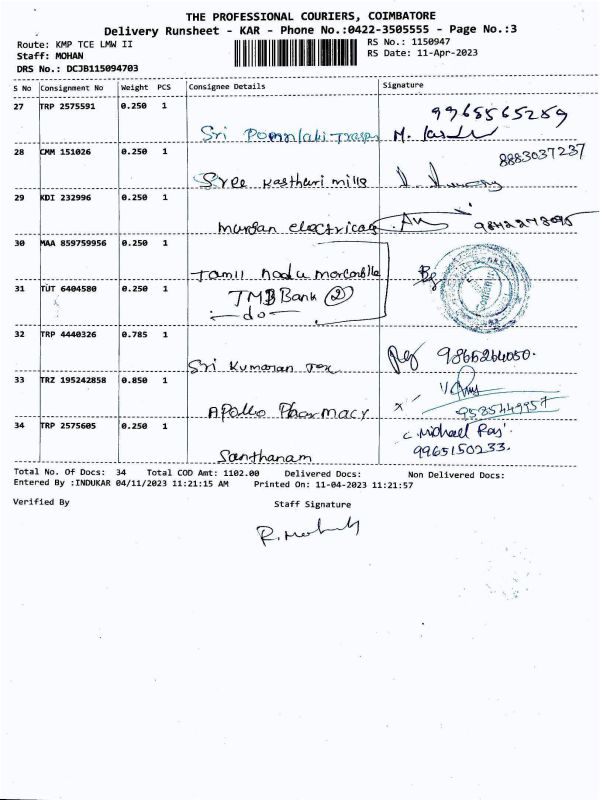 THE PROFESSIONAL COURIERS, COIMBATORE
Delivery Runsheet - KAR - Phone No.:0422-3505555 - Page No.:3
Route: KMP TCE LMW II
RS No.: 1150947
Staff: MOHAN
RS Date: 11-Apr-2023
DRS No.: DCJB115094703
S No Consignment No Weight PCS Consignee Details Signature
27 TRP 2575591 0.250 1 9965565259
Sri
28 CMM 151026 0.250 1 8883037237
Sree Kasthuri mills
29 KDI 232996 0.250 1
Murgan electricas
30 MAA 859759956 0.250 1
Tamil Nadu
31 TUT 6404580 0.250 1 TMB Bank (2)
—do—
32 TRP 4440326 0.785 1 9866264050.
Sri Kumaran Tex
33 TRZ 195242858 0.850 1
Apollo Pharmacy x 9585449957
34 TRP 2575605 0.250 1 C. Michael Raj
Santhanam 9965150233.
Total No. Of Docs: 34 Total COD Amt: 1102.00 Delivered Docs: Non Delivered Docs:
Entered By :INDUKAR 04/11/2023 11:21:15 AM Printed On: 11-04-2023 11:21:57
Verified By Staff Signature